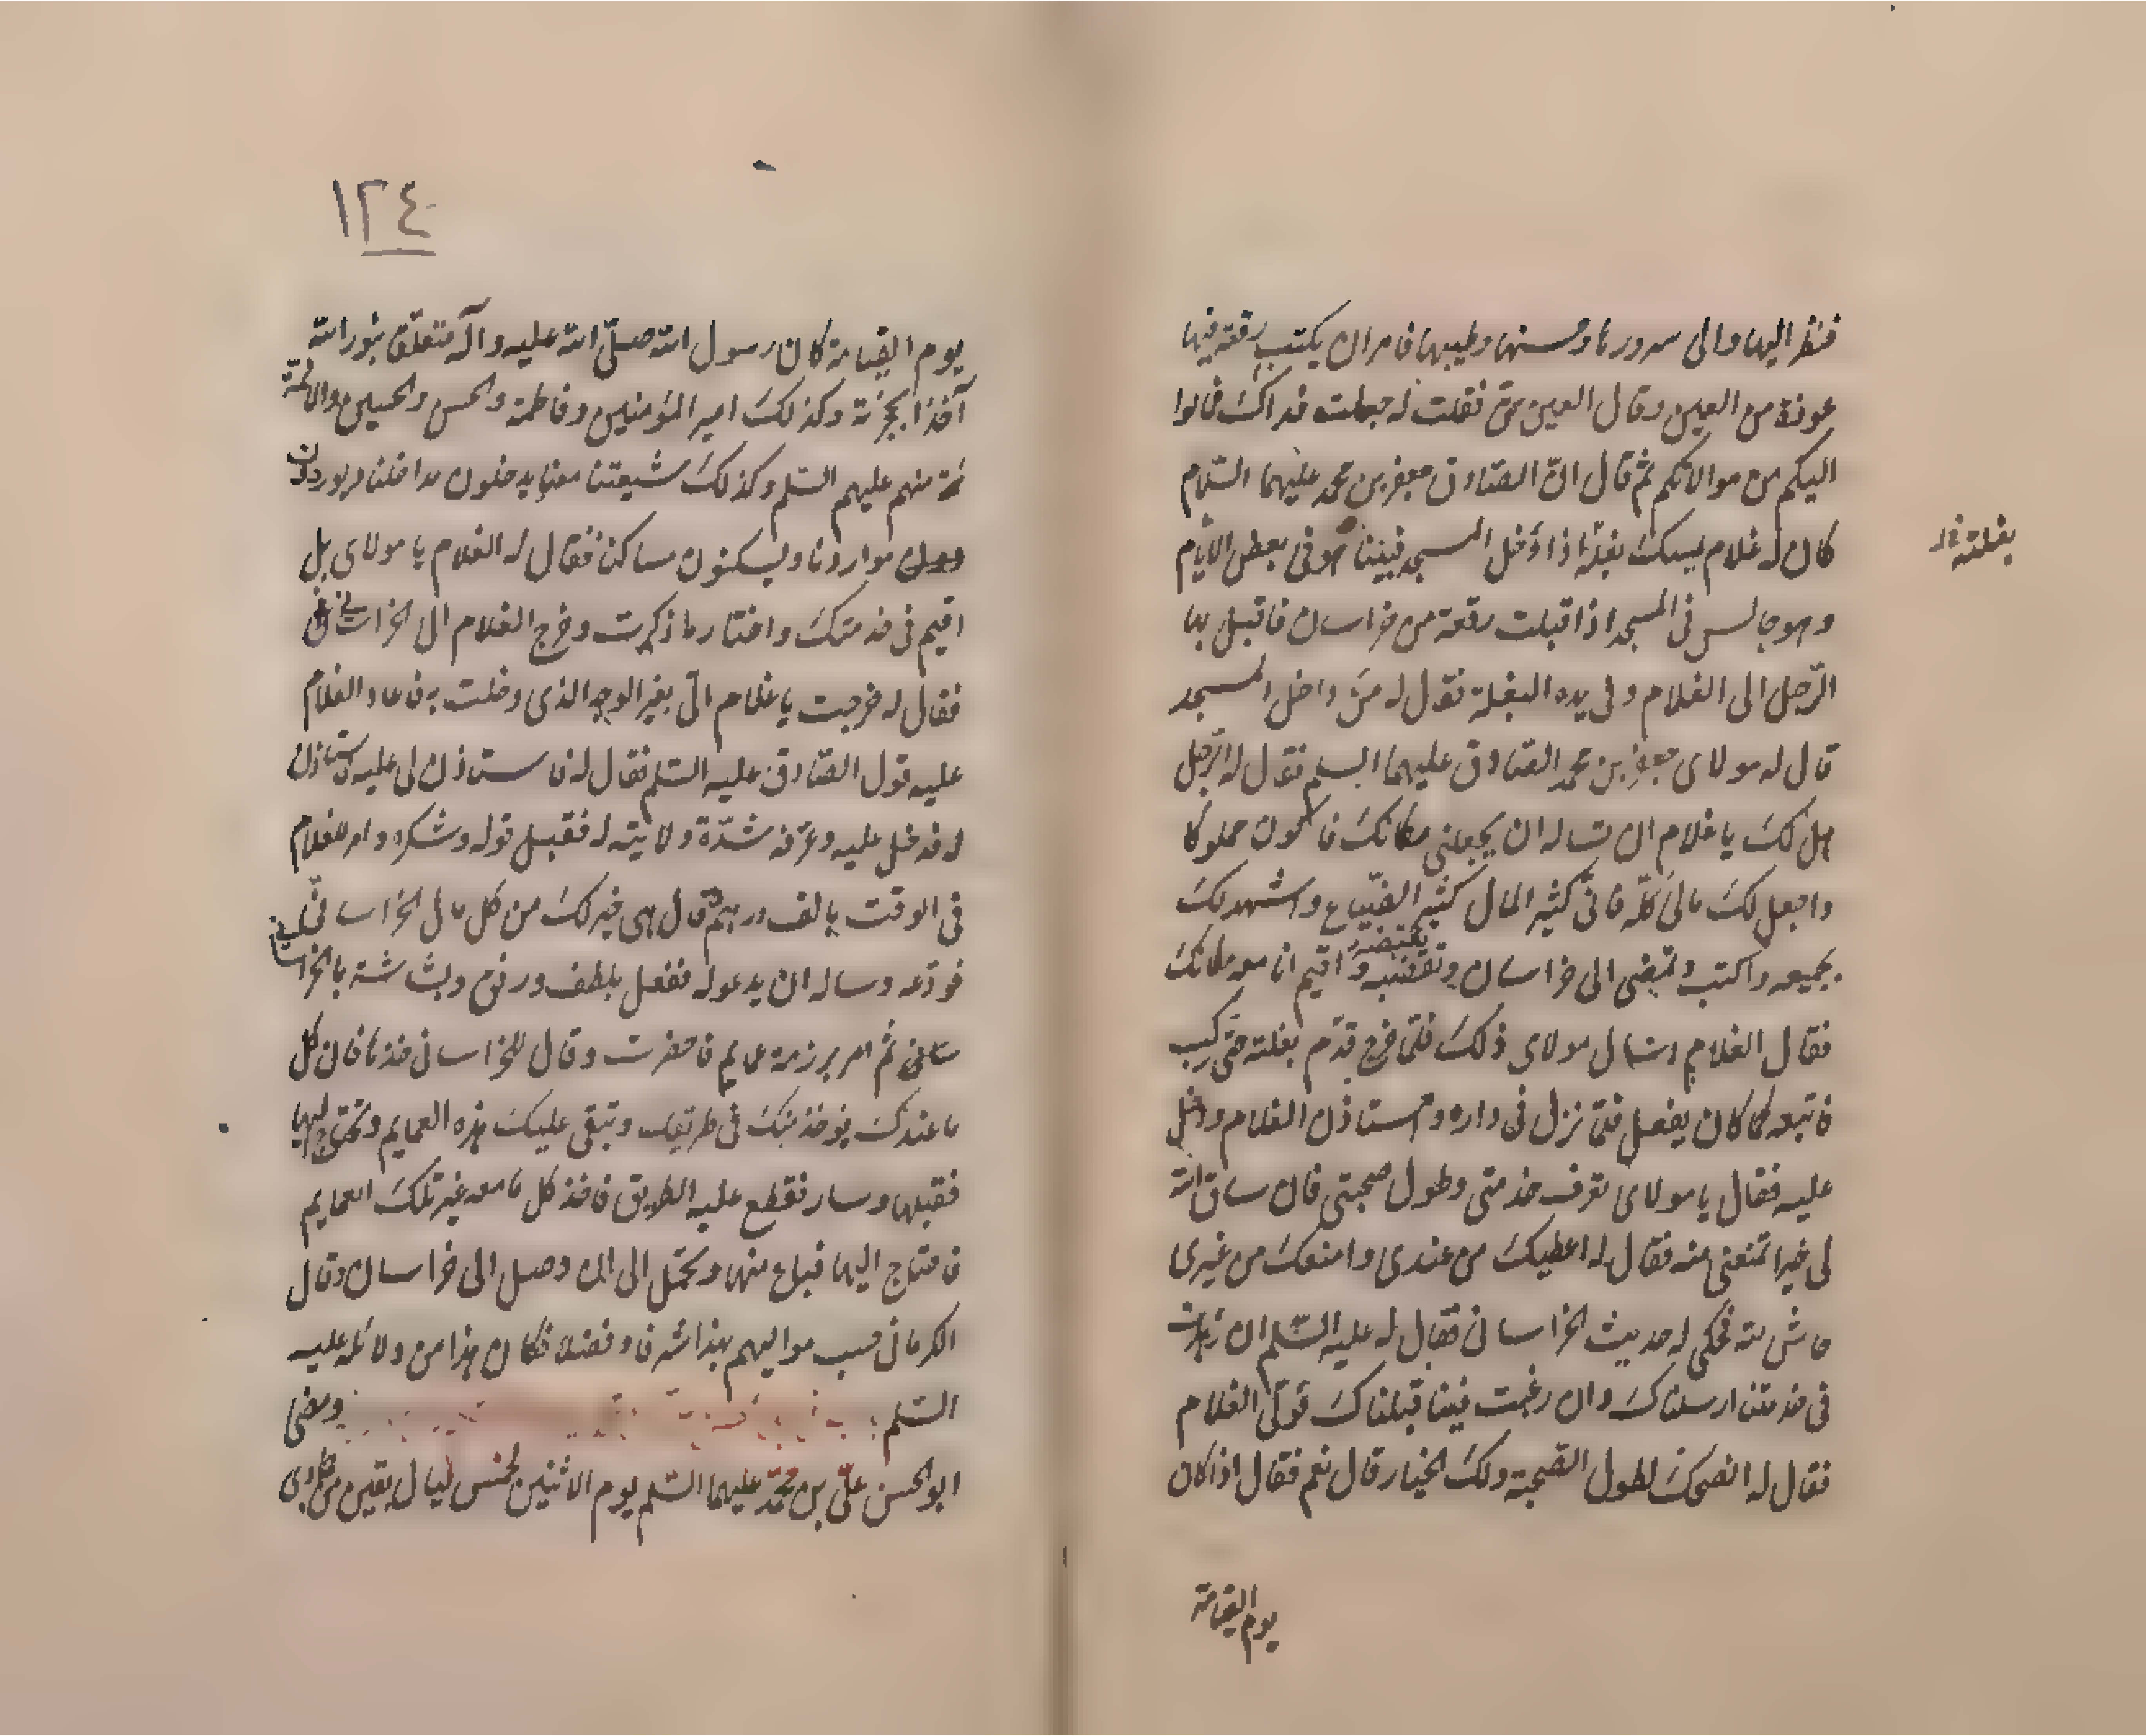 فنظر اليها والى سرورها وحسنها وطيبها فامر ان يكتب رقعة فيها
عوذة من العين وقال العين حق فقلت له جعلت فداك فما لوا
اليكم من موالاتكم ثم قال ان الصادق جعفر بن محمد عليهما السلام
كان له غلام يمسك بغلة اذا دخل المسجد فبينا هو في بعض الايام
بغلته
وهو جالس في المسجد اذا قبلت رفقة من خراسان فاقبل بها
الرجل الى الغلام وفي يده البغلة فقال له من داخل المسجد
قال له مولاى جعفر بن محمد الصادق عليهما السلم فقال له الرجل
هل لك يا غلام ان تساله ان يجعلني مكانك فاكون مملوكا
واجعل لك مالي كله فاني كثير المال كثير الضياع واشهد لك
بجميعه واكتب وتمضى الى خراسان وتقبضه واقيم انا معه مكانك
فقال الغلام اسال مولاى ذلك فلما خرج قدم بغلته حتى ركب
فاتبعه كما كان يفعل فلما نزل في داره واستاذن الغلام ودخل
عليه فقال يا مولاى تعرف خدمتي وطول صحبتي فان ساق الله
لى خيرا تمنعني منه فقال له اعطيك من عندى وامنعك من غيرى
حاش لله فحكى له حديث الخراساني فقال له عليه السلم ان زهدت
في خدمتنا ارسلناك وان رغبت فينا قبلناك فولى الغلام
فقال له انصحك لطول الصحبة ولك الخيار قال نعم فقال اذا كان
يوم القيامة
١٢٤
يوم القيامة كان رسول الله صلى الله عليه وآله متعلق بنور الله
آخذا بحجزته وكذلك امير المؤمنين وفاطمة والحسن والحسين والائمة
منهم عليهم السلم وكذلك شيعتنا معنا يدخلون مداخلنا ويوردون
مواردنا ويسكنون مساكننا فقال له الغلام يا مولاى بل
اقيم في خدمتك واختار ما ذكرت وخرج الغلام الى الخراساني
فقال له خرجت يا غلام الي بغير الوجه الذى دخلت به فاعاد الغلام
عليه قول الصادق عليه السلم فقال له فاستاذن لى عليه فاستاذن
له فدخل عليه وعرفه شدة ولايته له فقبل قوله وشكره وامر للغلام
في الوقت بالف درهم وقال هى خير لك من كل مال الخراساني
فودعه وساله ان يدعو له ففعل بلطف ورفق وبشاشة بالخراساني
ثم امر برزمة عمايم فاحضرت وقال للخراساني خذها فان كل
ما عندك يوخذ منك في طريقك وتبقى عليك هذه العمايم وتحتاج اليها
فقبلها وسار فقطع عليه الطريق فاخذ كل ما معه غير تلك العمايم
فاحتاج اليها فباع منها وتحمل الى ان وصل الى خراسان وقال
الكرماني حسب مواليهم بهذا شرفا وفضلا فكان هذا من دلائله عليه
السلم ومضى
ابو الحسن علي بن محمد عليهما السلم يوم الاثنين لخمس ليال بقين من